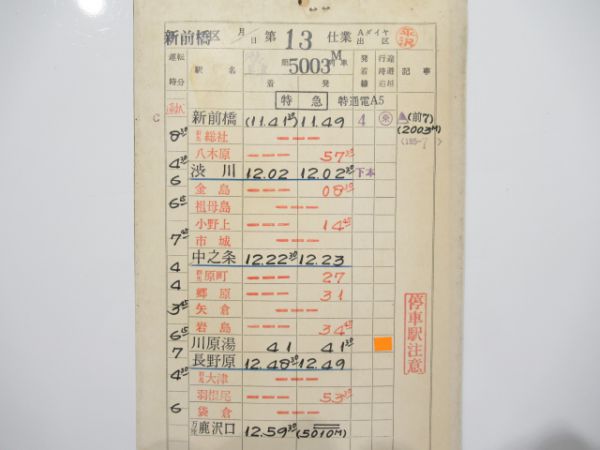 新前橋区 月/日 第 13 仕業 Aダイヤ出区
運転時分 駅名 期 5003M 列車 着 発 発着線 記事
特急 特通電A5
新前橋 (11.41) 11.49 4 (前7)
(2003M)
(185-7)
8 群馬総社 ---
八木原 --- 57
4
渋川 12.02 12.02 下本
6
金島 --- 08
祖母島 ---
6
小野上 --- 14
市城 ---
7
中之条 12.22 12.23
4
群馬原町 --- 27
4
郷原 --- 31
矢倉 ---
3
岩島 --- 34
6
川原湯 41 41
7
長野原 12.48 12.49
群馬大津 ---
4
羽根尾 --- 53
袋倉 ---
6
万座鹿沢口 12.59 (5010M)
停車駅注意